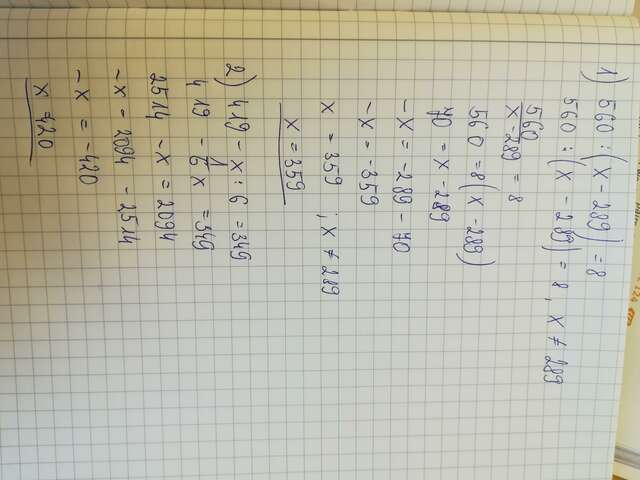 1) 560 : (x - 289) = 8
560 : (x - 289) = 8, x ≠ 289
560
x - 289 = 8
560 = 8(x - 289)
70 = x - 289
-x = -289 - 70
-x = -359
x = 359 ; x ≠ 289
x = 359
2) 419 - x : 6 = 349
419 - 1/6 x = 349
2514 - x = 2094
-x = 2094 - 2514
-x = -420
x = 420